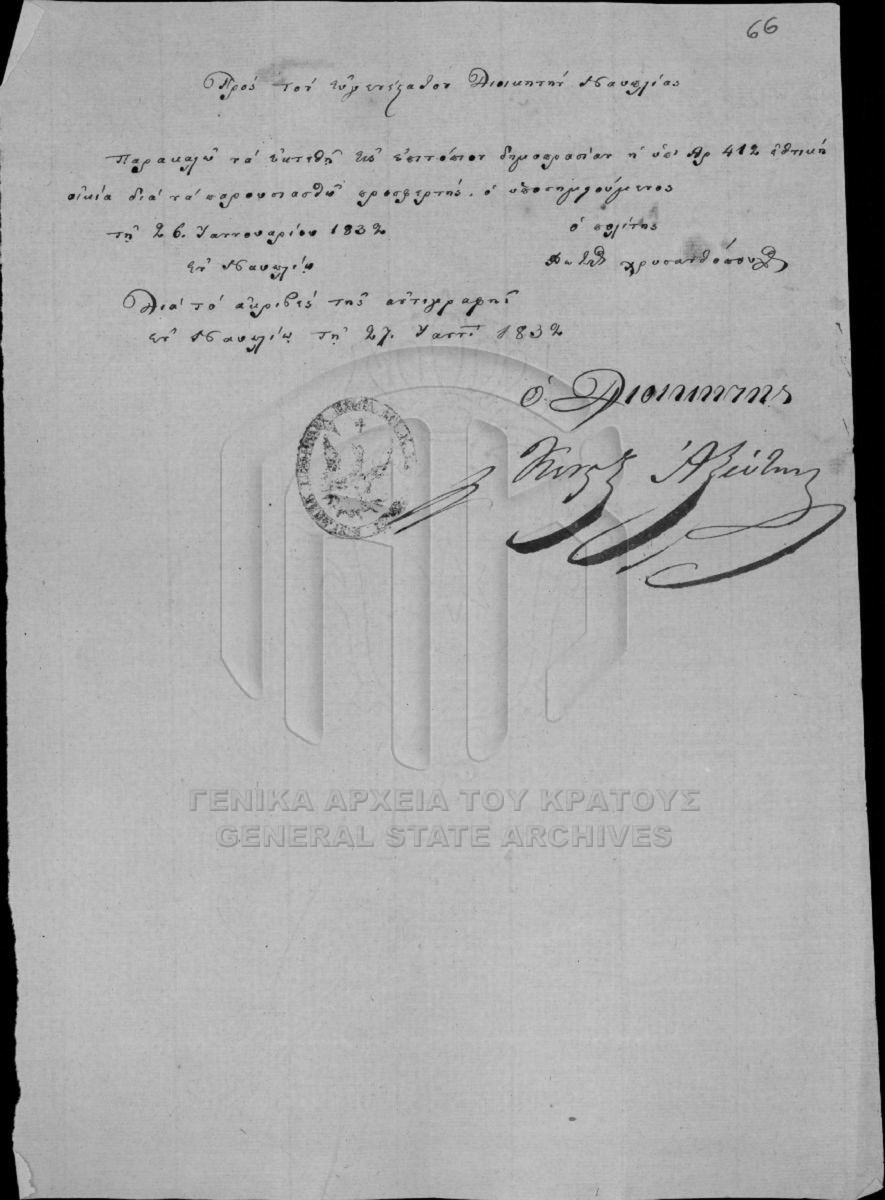 66
Πρός τόν εὐγενέςατον Διοικητήν Ναυπλίας
Παρακαλῶ νά ἐκτεθῇ εἰς ἐπιτόπιον δημοπρασίαν ἡ ὑπ' Αρ 412 ἐθνική
οἰκία διά νά παρουσιασθῶ προσφερτής. ὁ υποσημειούμενος
τῇ 26. Ιαννουαρίου 1832
ὁ πολίτης
ἐν Ναυπλίῳ
Χρυσανθόπουλος
Διά τό ἀκριβές τῆς ἀντιγραφῆς
ἐν Ναυπλίῳ τῇ 27. Ιαννʳ 1832
ὁ Διοικητής
Κ. Ἀξιώτης
ΓΕΝΙΚΑ ΑΡΧΕΙΑ ΤΟΥ ΚΡΑΤΟΥΣ
GENERAL STATE ARCHIVES